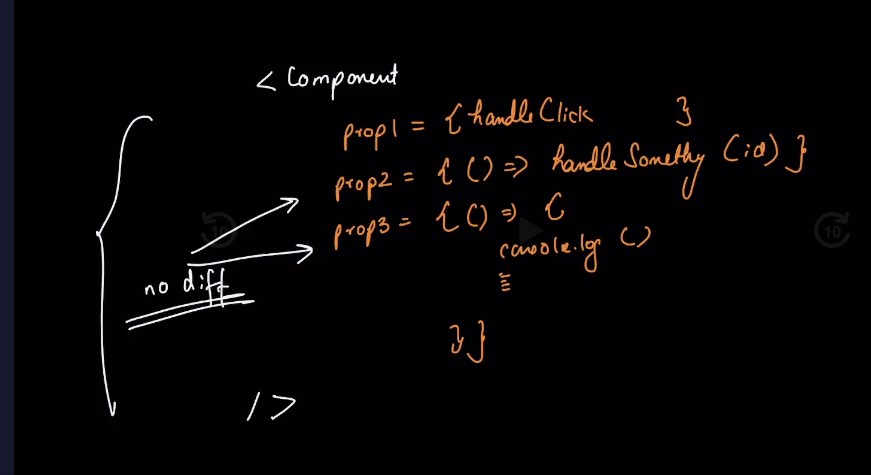 < Component
prop1 = {handleClick }
prop2 = { () => handleSomethy (id) }
prop3 = { () => {
console.log ()
no diff
} }
/>
10
10